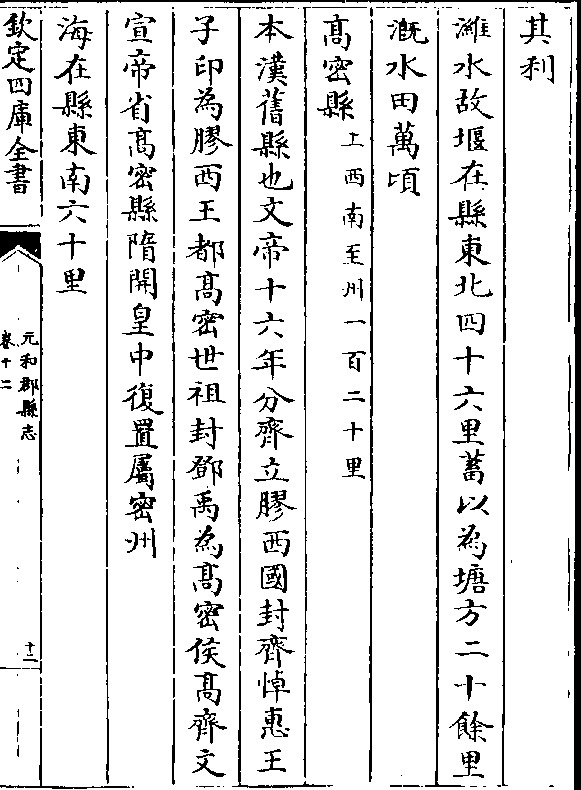 其利
濰水故堰在縣東北四十六里蓄以為塘方二十餘里
溉水田萬頃
髙密縣上西南至州一百二十里
本漢舊縣也文帝十六年分齊立膠西國封齊悼惠王
子印為膠西王都髙密世祖封鄧禹為髙密侯髙齊文
宣帝省髙密縣隋開皇中復置屬密州
海在縣東南六十里
欽定四庫全書
元和郡縣志
卷十二
十二